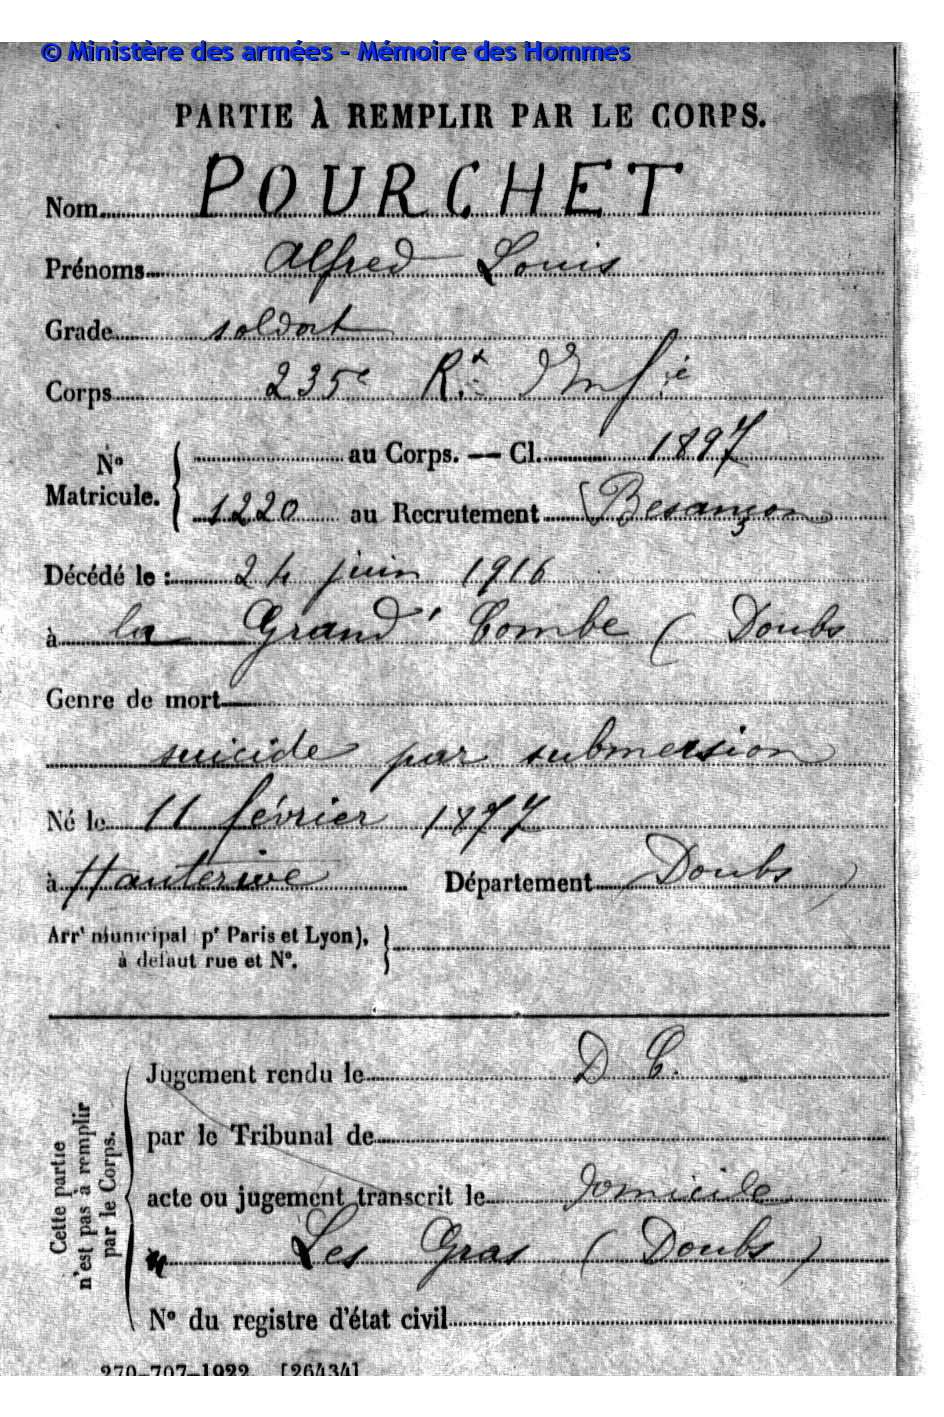 © Ministère des armées - Mémoire des Hommes
PARTIE À REMPLIR PAR LE CORPS.
Nom POURCHET
Prénoms Alfred Louis
Grade soldat
Corps 235e Rt Infie
No Matricule. { au Corps. — Cl. 1897
1220 au Recrutement Besançon
Décédé le : 24 juin 1916
à la Grand' Combe (Doubs
Genre de mort
suicide par submersion
Né le 11 février 1877
à Hauterive Département Doubs )
Arrt municipal pr Paris et Lyon), }
à défaut rue et No.
Cette partie n'est pas à remplir par le Corps.
Jugement rendu le D C.
par le Tribunal de
acte ou jugement transcrit le domicile
Les Gras (Doubs)
No du registre d'état civil
270-707-1922. [26434]